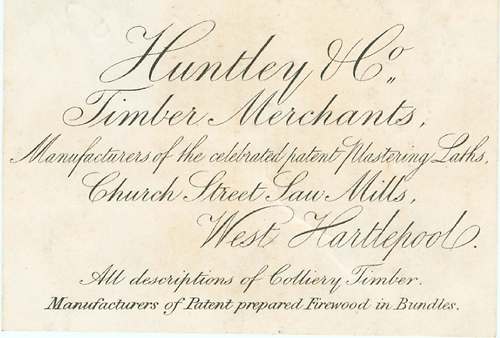 Huntley & Co.,
Timber Merchants,
Manufacturers of the celebrated patent Plastering Laths,
Church Street Saw Mills,
West Hartlepool.
All descriptions of Colliery Timber.
Manufacturers of Patent prepared Firewood in Bundles.